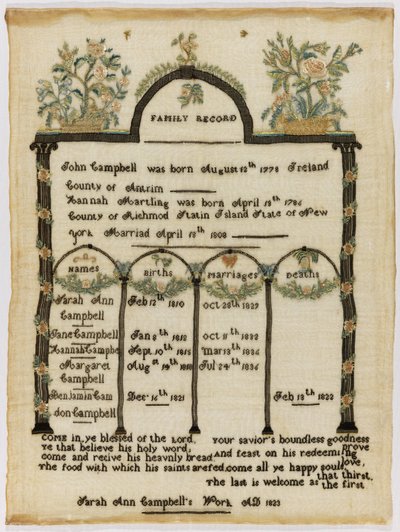 FAMILY RECORD
John Campbell was born August 12th 1778 Ireland
County of Antrim
Hannah Martling was born April 18th 1786
County of Richmod Statin Island State of New
york Marriad April 13th 1808
Names Births Marriages Deaths
Sarah Ann Campbell Feb 12th 1810 oct 28th 1827
Jane Campbell Jan 8th 1812 oct 11th 1832
Hannah Campbe Sept 10th 1815 Mar 13th 1834
Margaret Campbell Aug st 14th Jul 24th 1836
Benjamin Cam don Campbell Dec 16th 1821 Feb 18th 1822
COME in, ye blessed of the Lord,
ye that believe his holy word,
come and recive his heavnly bread
The food with which his saints are fed,
your savior's boundless goodness prove
and feast on his redeeming love,
come all ye happy souls that thirst,
The last is welcome as the first
Sarah Ann Campbell's Work AD 1823